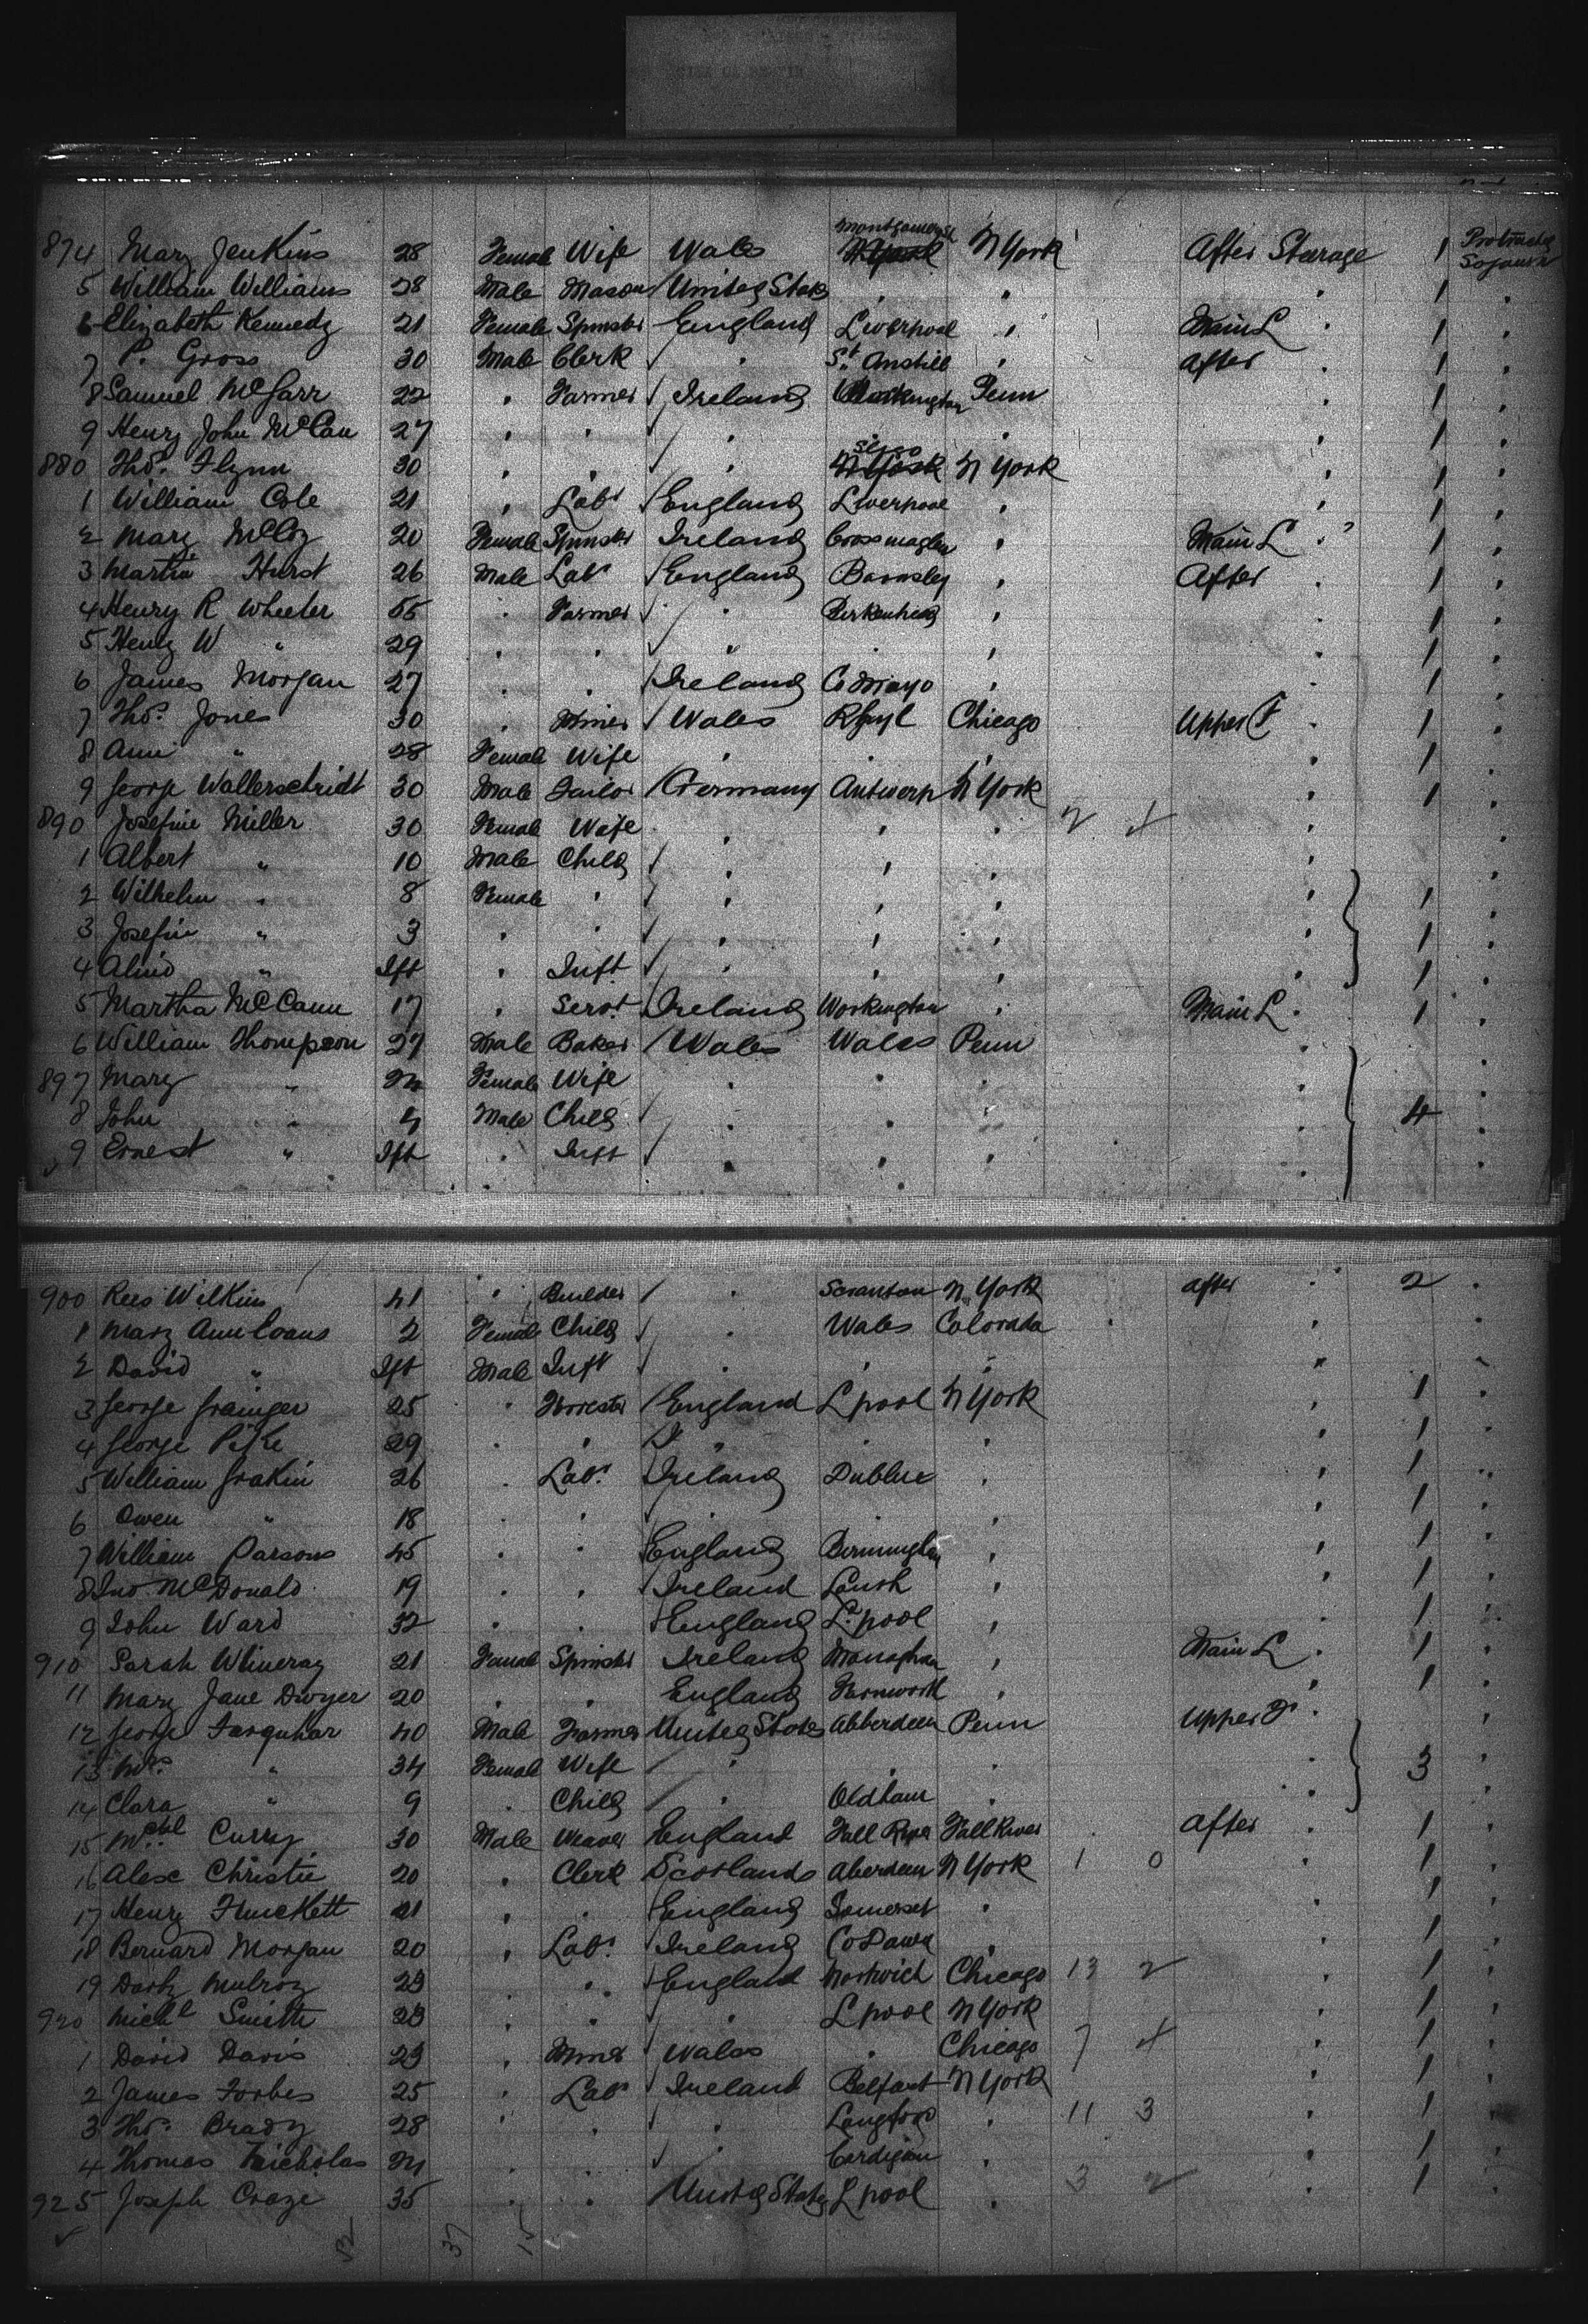 874 Mary Jenkins 28 Female Wife Wales N York N York After Steerage 1
5 William Williams 28 Male Mason United States " " 1
6 Elizabeth Kennedy 21 Female Spinster England Liverpool " Main L " 1
7 P. Gross 30 Male Clerk " St. Anstill " After " 1
8 Samuel McGarr 22 " Farmer Ireland Workington Penn " 1
9 Henry John McCan 27 " " " " " 1
880 Thos. Flynn 30 " " " Sligo N York N York " 1
1 William Cole 21 " Labr England Liverpool " " 1
2 Mary McCoy 20 Female Spinster Ireland Crossmaglen " Main L " 1
3 Martin Hurst 26 Male Labr England Barnsley " After " 1
4 Henry R Wheeler 55 " Farmer " Birkenhead " 1
5 Henry W " 29 " " " " " 1
6 James Morgan 27 " " Ireland Co Mayo " 1
7 Thos. Jones 30 " Miner Wales Rhyl Chicago Upper F " 1
8 Ann " 28 Female Wife " " " 1
9 George Wallerschridt 30 Male Tailor Germany Antwerp N York " 1
890 Josefine Miller 30 Female Wife " " " 2 4 "
1 Albert " 10 Male Child " " " "
2 Wilhelm " 8 Female " " " " " 1
3 Josefin " 3 " " " " " " 1
4 " Ift " Inft " " " " 1
5 Martha McCann 17 " Servt. Ireland Workington " Main L " 1
6 William Thompson 27 Male Baker Wales Wales Penn "
897 Mary " Female Wife " " " "
8 John " 4 Male Child " " " " 4
9 Ernest " Ift " Inft " " " "
900 Rees Wilkins 41 " Builder " Scranton N York After " 2
1 Mary Ann Evans 2 Female Child " Wales Colorada "
2 David " Ift Male Inft " " " "
3 George Grainger 25 " Forrester England L pool N York " 1
4 George Pike 29 " " " " " " 1
5 William Grakin 26 " Labr. Ireland Dublin " " 1
6 Owen " 18 " " " " " 1
7 William Parsons 45 " " England Birmingham " " 1
8 Jno. McDonald 19 " " Ireland Louth " " 1
9 John Ward 32 " " England L. pool " " 1
910 Sarah Whineray 21 Female Spinster Ireland Monaghan " Main L " 1
11 Mary Jane Dwyer 20 " " England Farnworth " " 1
12 George Farquhar 40 Male Farmer United States Abberdeen Penn Upper F "
13 Mrs. " 34 Female Wife " " " " 3
14 Clara " 9 " Child " Oldham " "
15 Mchl Curry 30 Male Weaver England Fall River Fall River After " 1
16 Alex Christie 20 " Clerk Scotland Aberdeen N York 1 0 " 1
17 Henry 21 " " England Somerset " " 1
18 Bernard Morgan 20 " Labr. Ireland Co Down " " 1
19 Darby Mulroy 23 " " England Northwich Chicago 13 2 " 1
920 Michl Smith 23 " " " L pool N York " 1
1 David Davis 23 " Miner Wales " Chicago 7 4 " 1
2 James Forbes 25 " Labr Ireland Belfast N York " 1
3 Thos. Brady 28 " " " Longford " 11 3 " 1
4 Thomas Nicholas " " " Cardigan " " 1
925 Joseph Craze 35 " " United States L pool " 3 2 " 1